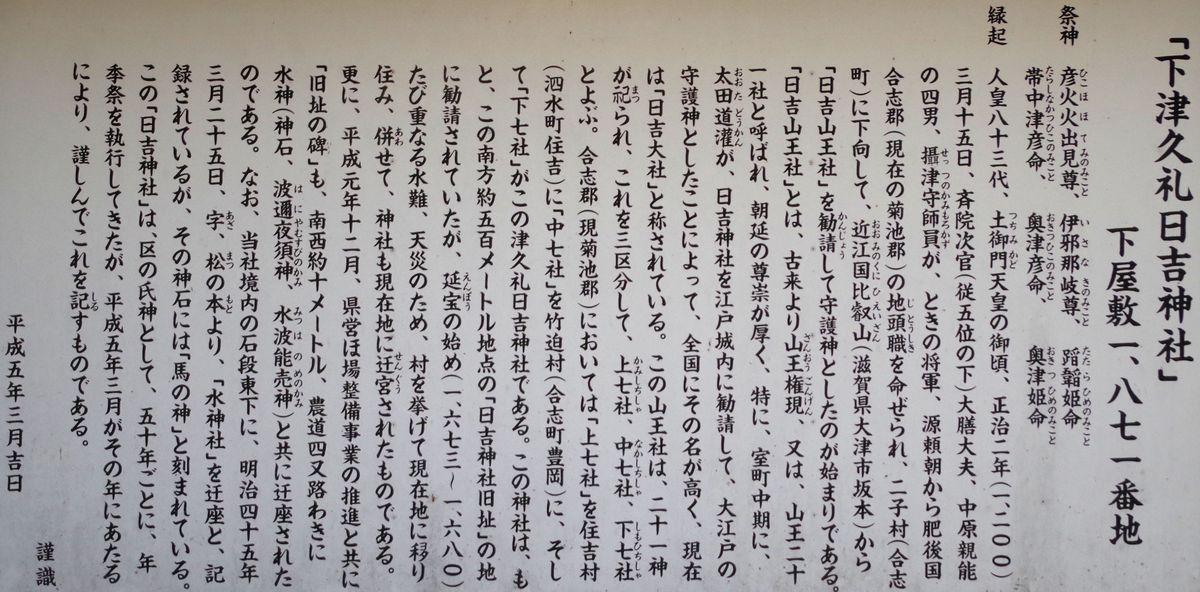 「下津久礼日吉神社」
下屋敷一、八七一番地
祭神　彦火火出見尊、伊邪那岐尊、蹈鞴姫命
帯中津彦命、奥津彦命、奥津姫命
縁起
人皇八十三代、土御門天皇の御頃、正治二年(一、二〇〇)
三月十五日、斉院次官(従五位の下)大膳大夫、中原親能
の四男、攝津守師員が、ときの将軍、源頼朝から肥後国
合志郡(現在の菊池郡)の地頭職を命ぜられ、二子村(合志
町)に下向して、近江国比叡山(滋賀県大津市坂本)から
「日吉山王社」を勧請して守護神としたのが始まりである。
「日吉山王社」とは、古来より山王権現、又は、山王二十
一社と呼ばれ、朝廷の尊崇が厚く、特に、室町中期に、
太田道灌が、日吉神社を江戸城内に勧請して、大江戸の
守護神としたことによって、全国にその名が高く、現在
は「日吉大社」と称されている。この山王社は、二十一神
が祀られ、これを三区分して、上七社、中七社、下七社
とよぶ。合志郡(現菊池郡)においては「上七社」を住吉村
(泗水町住吉)に「中七社」を竹迫村(合志町豊岡)に、そし
て「下七社」がこの津久礼日吉神社である。この神社は、も
と、この南方約五百メートル地点の「日吉神社旧址」の地
に勧請されていたが、延宝の始め(一、六七三〜一、六八〇)
たび重なる水難、天災のため、村を挙げて現在地に移り
住み、併せて、神社も現在地に迁宮されたものである。
更に、平成元年十二月、県営ほ場整備事業の推進と共に
「旧址の碑」も、南西約十メートル、農道四又路わきに
水神(神石、波邇夜須神、水波能売神)と共に迁座された
のである。なお、当社境内の石段東下に、明治四十五年
三月二十五日、字、松の本より、「水神社」を迁座と、記
録されているが、その神石には「馬の神」と刻まれている。
この「日吉神社」は、区の氏神として、五十年ごとに、年
季祭を執行してきたが、平成五年三月がその年にあたる
により、謹しんでこれを記すものである。
平成五年三月吉日
謹識